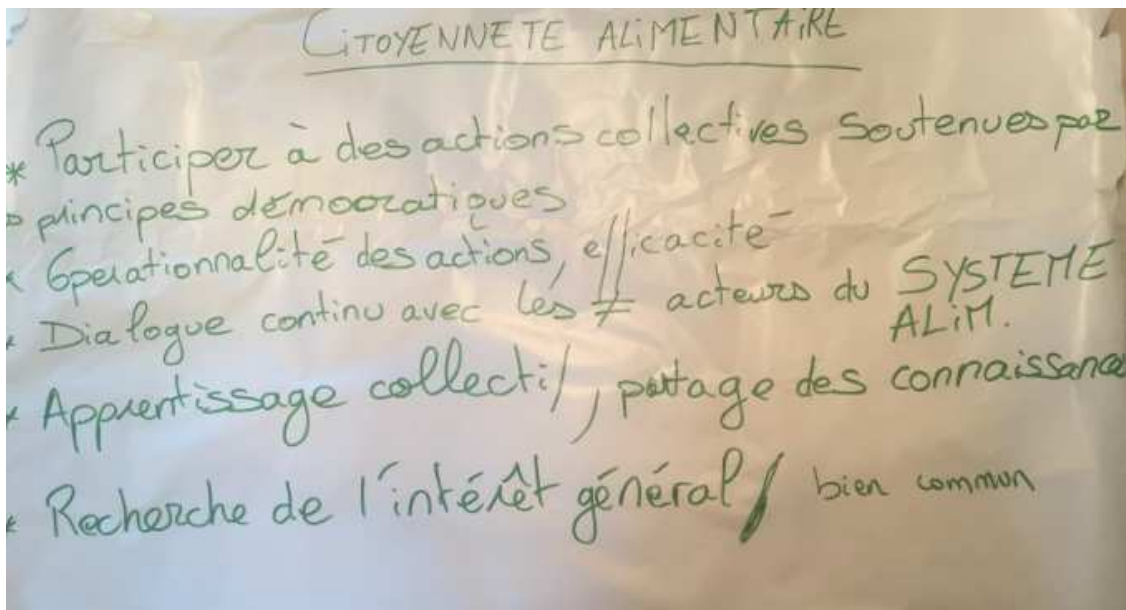 CITOYENNETE ALIMENTAIRE
* Participer à des actions collectives soutenues par
principes démocratiques
* Opérationnalité des actions, efficacité
* Dialogue continu avec les ≠ acteurs du SYSTEME
ALIM.
* Apprentissage collectif, partage des connaissance
* Recherche de l'intérêt général / bien commun